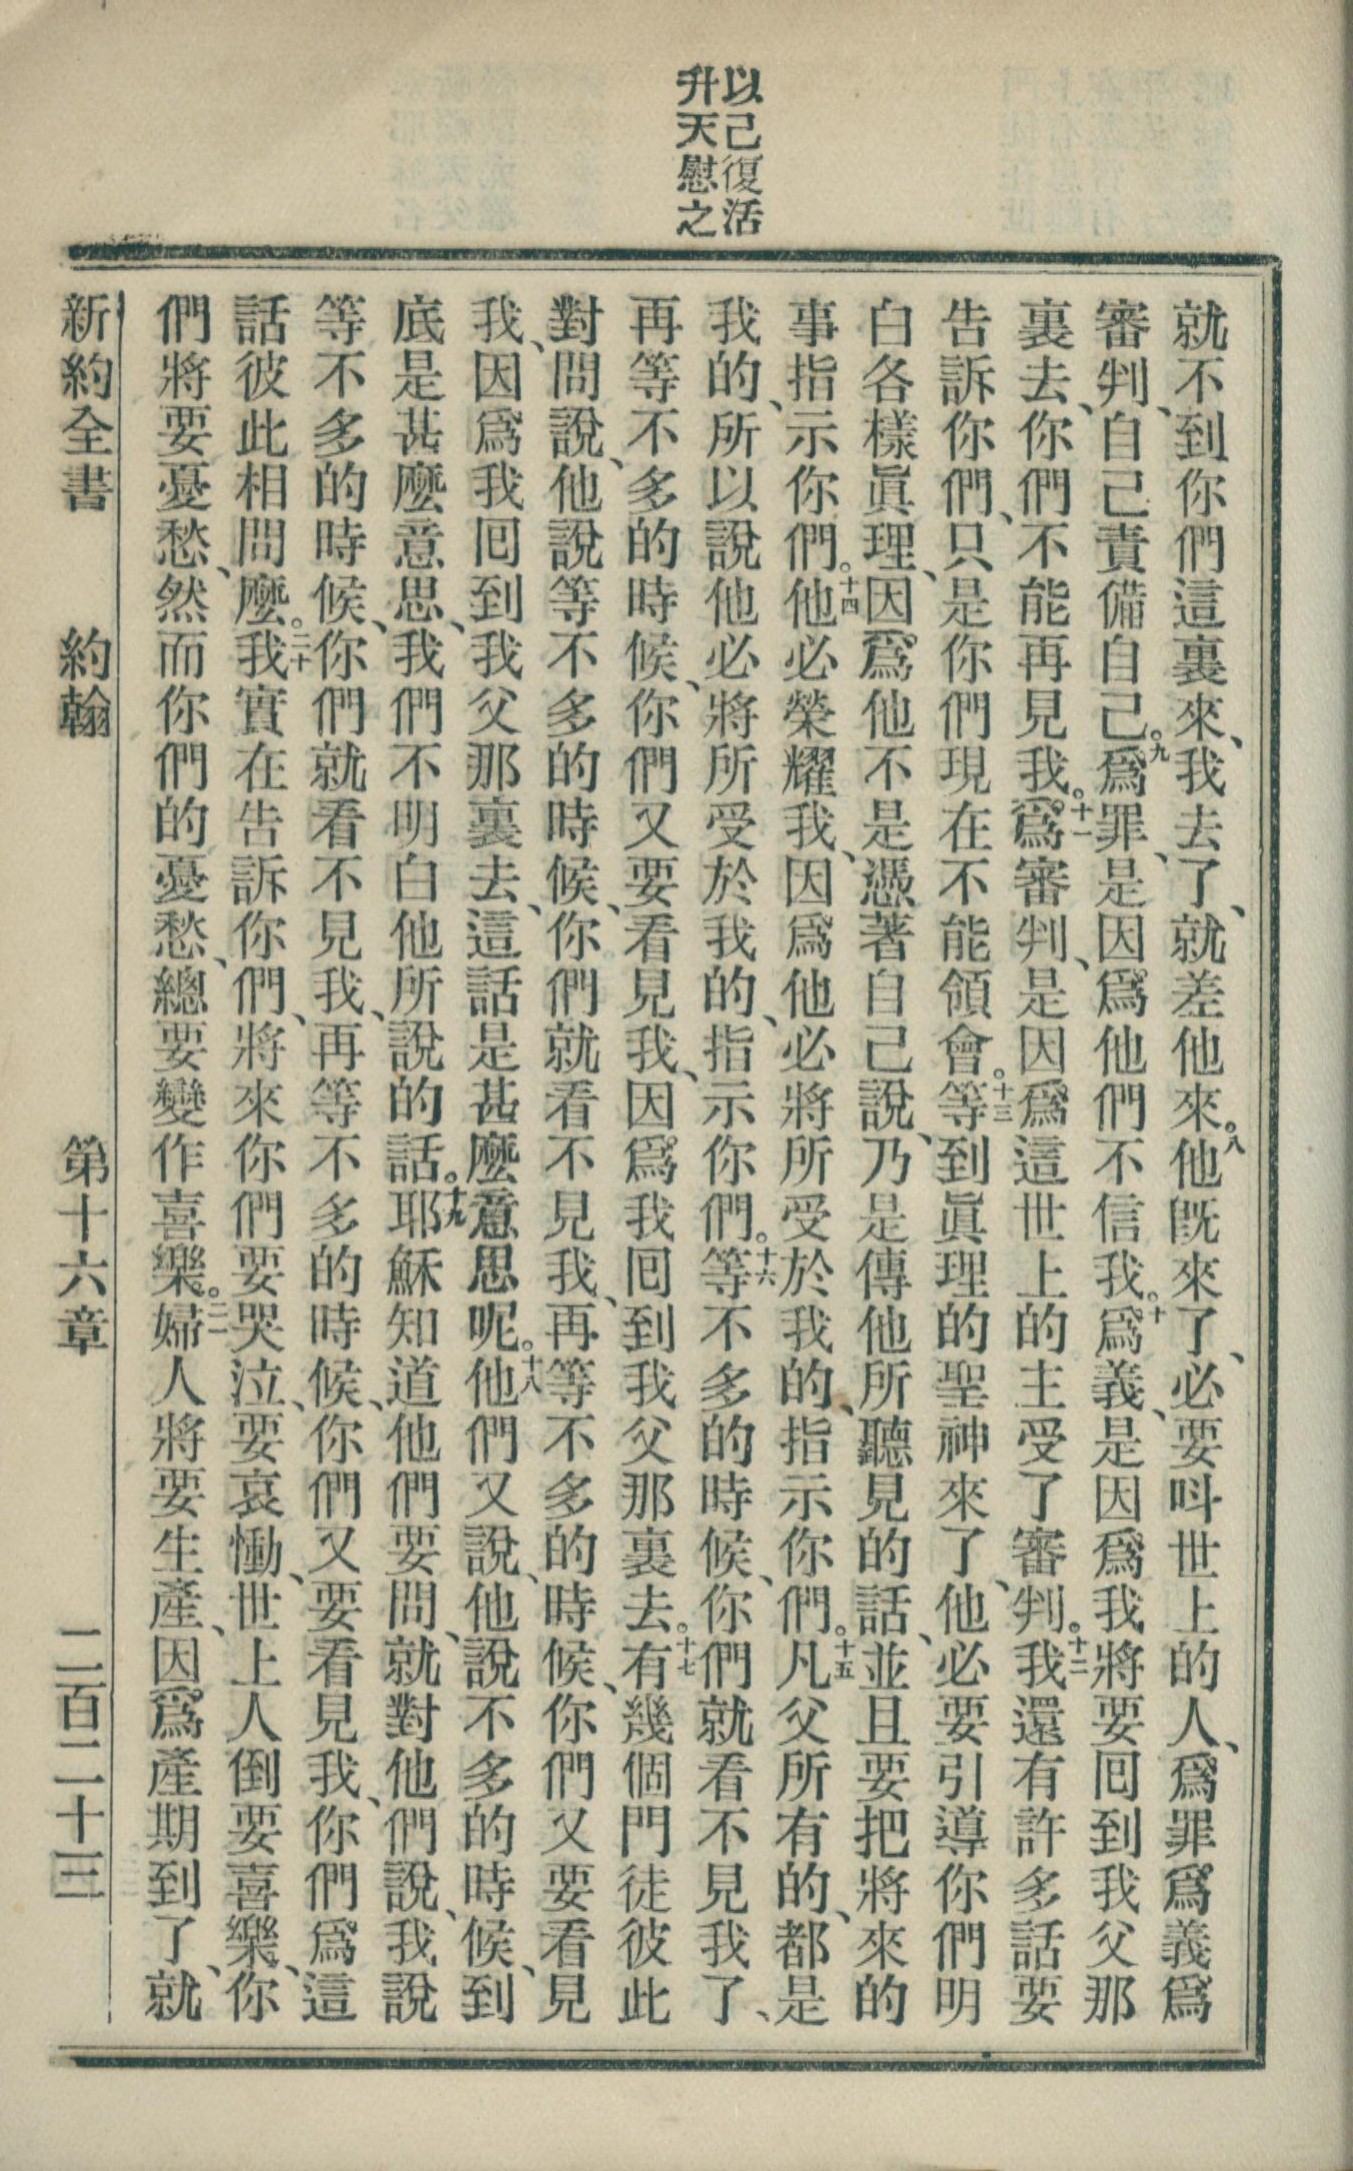 以己復活
升天慰之
就不到你們這裏來、我去了、就差他來。八他旣來了、必要呌世上的人、爲罪爲義爲
審判、自己責備自己。九爲罪、是因爲他們不信我。十爲義、是因爲我將要囘到我父那
裏去、你們不能再見我。十一爲審判、是因爲這世上的主受了審判。十二我還有許多話要
告訴你們、只是你們現在不能領會。十三等到眞理的聖神來了、他必要引導你們明
白各樣眞理、因爲他不是憑著自己說、乃是傳他所聽見的話、並且要把將來的
事指示你們。十四他必榮耀我、因爲他必將所受於我的、指示你們。十五凡父所有的、都是
我的、所以說他必將所受於我的、指示你們。十六等不多的時候、你們就看不見我了、
再等不多的時候、你們又要看見我、因爲我囘到我父那裏去。十七有幾個門徒彼此
對問說、他說等不多的時候、你們就看不見我、再等不多的時候、你們又要看見
我、因爲我囘到我父那裏去、這話是甚麼意思呢。十八他們又說、他說不多的時候、到
底是甚麼意思、我們不明白他所說的話。十九耶穌知道他們要問、就對他們說、我說
等不多的時候、你們就看不見我、再等不多的時候、你們又要看見我、你們爲這
話彼此相問麼。二十我實在告訴你們、將來你們要哭泣、要哀慟、世上人倒要喜樂、你
們將要憂愁、然而你們的憂愁、總要變作喜樂。二一婦人將要生產、因爲產期到了、就
新約全書　約翰　第十六章　二百二十三